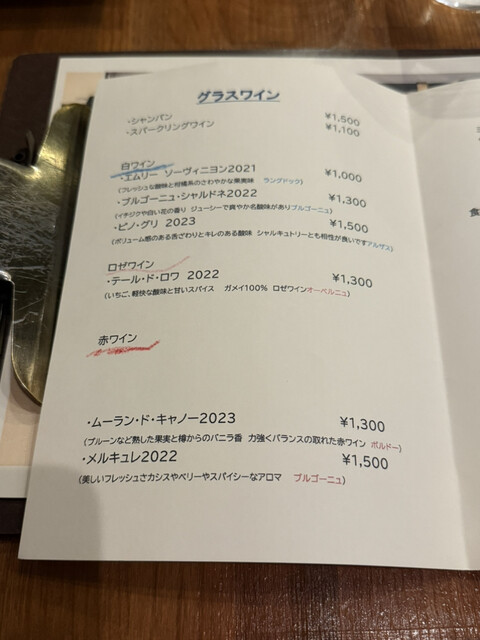 グラスワイン
・シャンパン ¥1,500
・スパークリングワイン ¥1,100
白ワイン
・エムリー ソーヴィニヨン2021 ¥1,000
(フレッシュな酸味と柑橘系のさわやかな果実味 ラングドック)
・ブルゴーニュ・シャルドネ2022 ¥1,300
(イチジクや白い花の香り ジューシーで爽やか名酸味がありブルゴーニュ)
・ピノ・グリ 2023 ¥1,500
(ボリューム感のある舌ざわりとキレのある酸味 シャルキュトリーとも相性が良いですアルザス)
ロゼワイン
・テール・ド・ロワ 2022 ¥1,300
(いちご、軽快な酸味と甘いスパイス ガメイ100% ロゼワインオーベルニュ)
赤ワイン
・ムーラン・ド・キャノー2023 ¥1,300
(プルーンなど熟した果実と樽からのバニラ香 力強くバランスの取れた赤ワイン ボルドー)
・メルキュレ2022 ¥1,500
(美しいフレッシュさカシスやベリーやスパイシーなアロマ ブルゴーニュ)